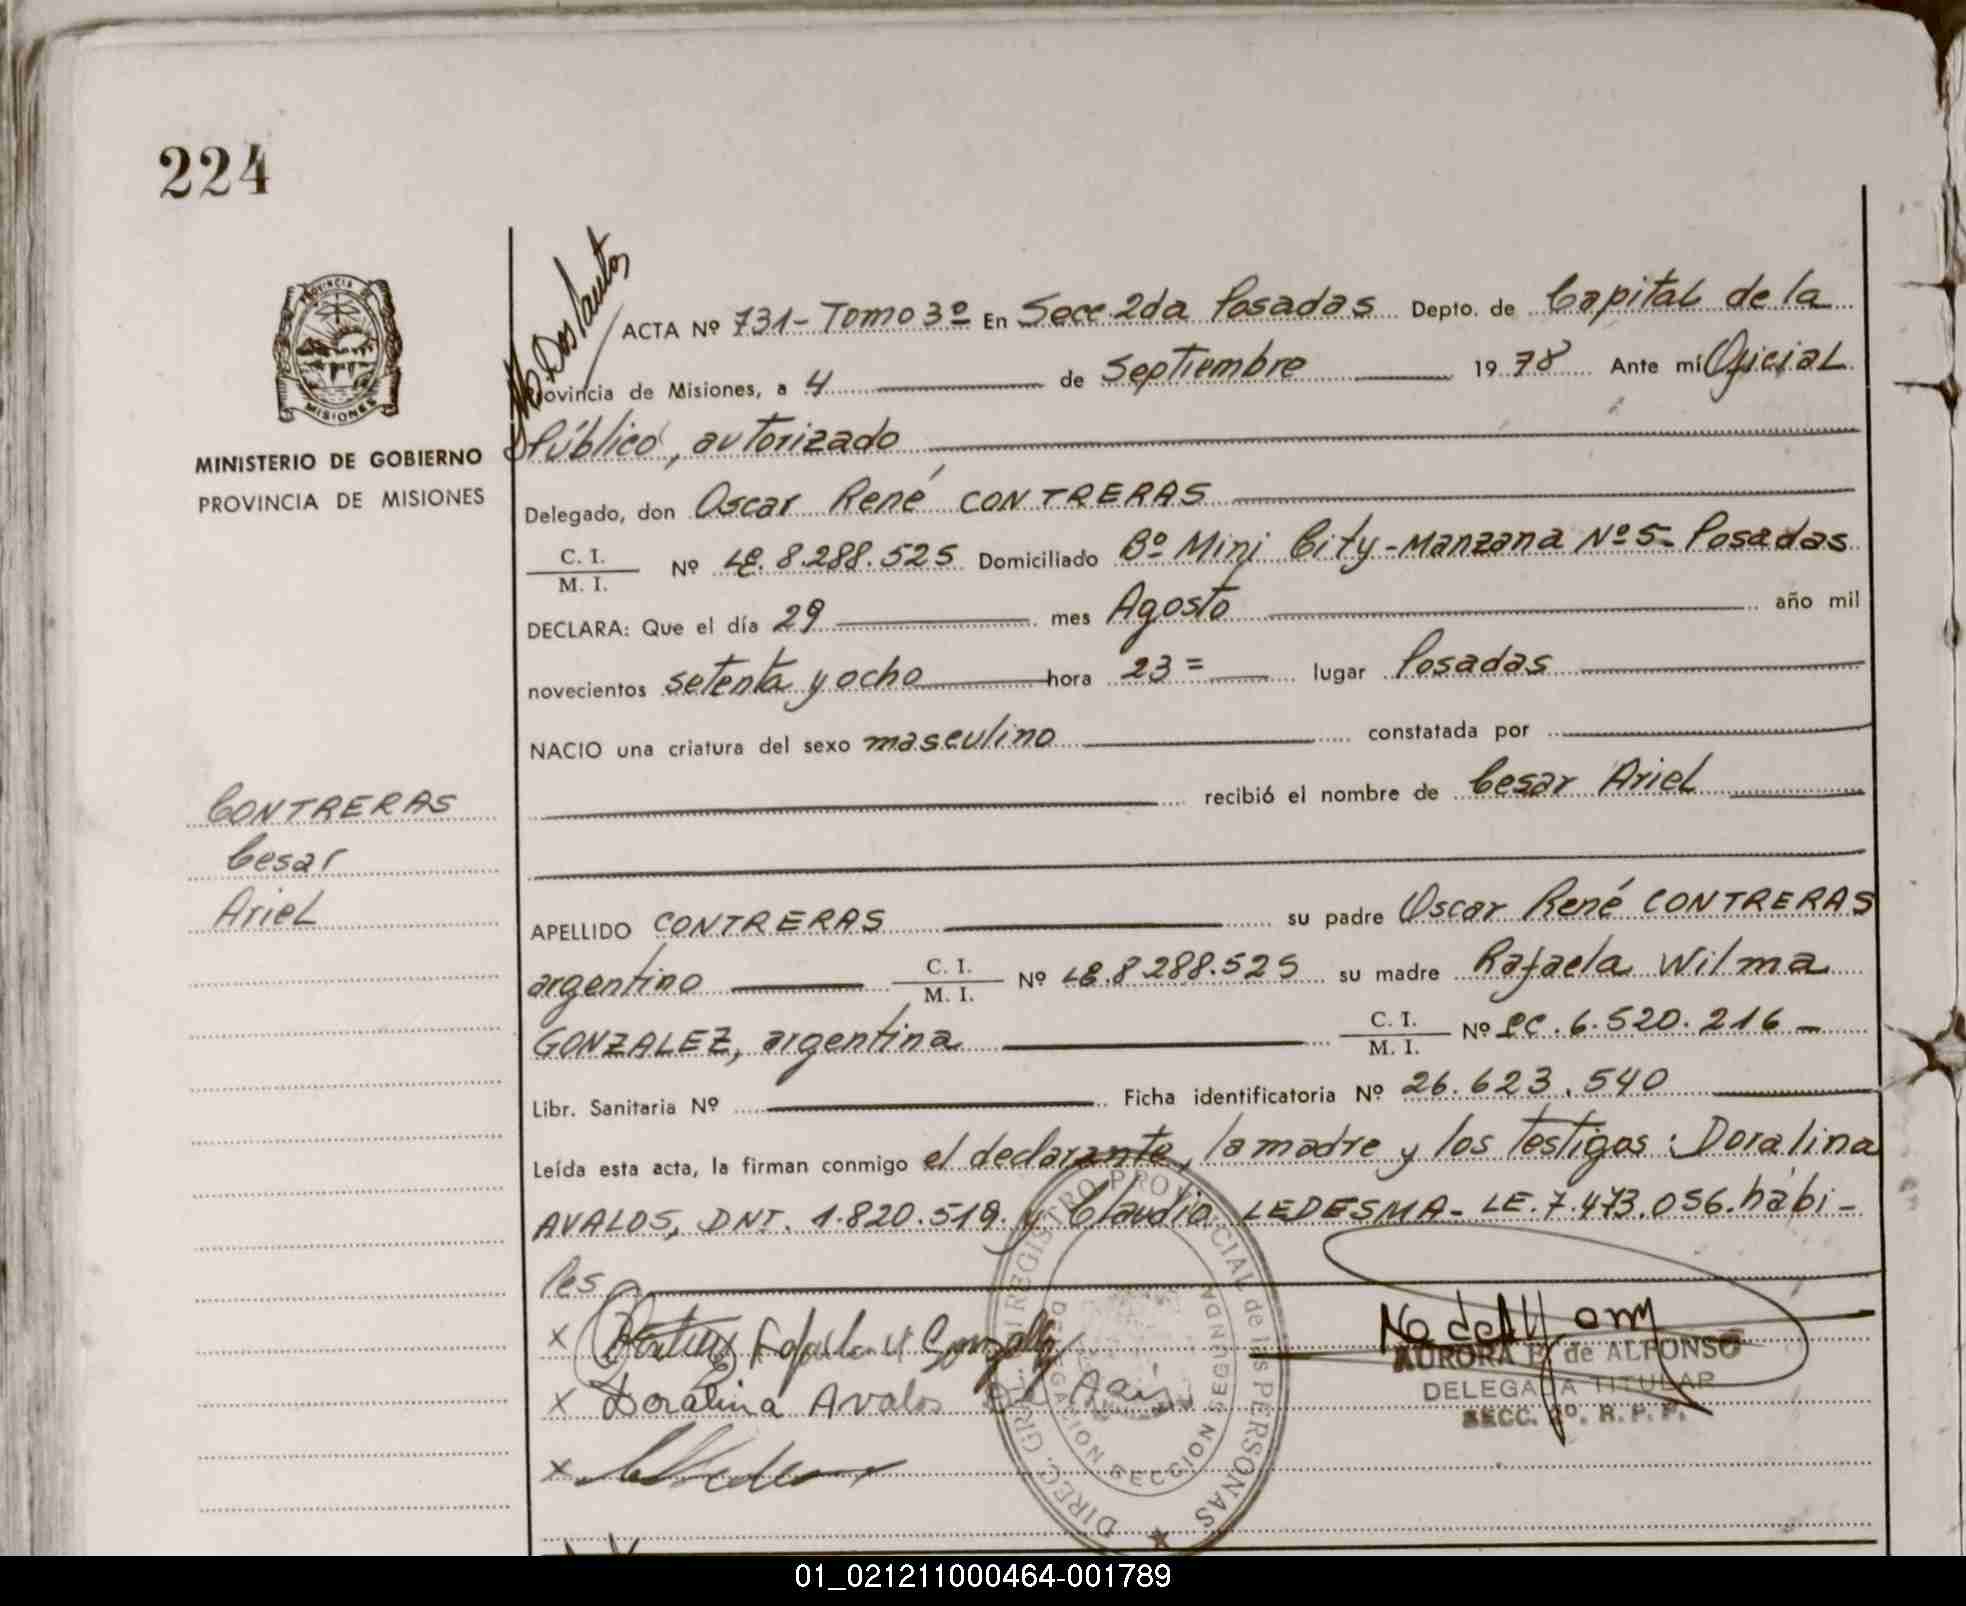 224
PROVINCIA DE
MISIONES
MINISTERIO DE GOBIERNO
PROVINCIA DE MISIONES
CONTRERAS
Cesar
Ariel
Dos Santos
ACTA Nº 731- Tomo 3º En Secc. 2da Posadas Depto. de Capital de la
Provincia de Misiones, a 4 de Septiembre 1978 Ante mí Oficial
Público, autorizado
Delegado, don Oscar René CONTRERAS
C. I.
M. I. Nº LE. 8.288.525 Domiciliado Bº Mini City-Manzana Nº 5- Posadas
DECLARA: Que el día 29 mes Agosto año mil
novecientos setenta y ocho hora 23= lugar Posadas
NACIO una criatura del sexo masculino constatada por
recibió el nombre de Cesar Ariel
APELLIDO CONTRERAS su padre Oscar René CONTRERAS
argentino C. I. M. I. Nº LE. 8.288.525 su madre Rafaela Wilma
GONZALEZ, argentina C. I. M. I. Nº LC. 6.520.216 -
Libr. Sanitaria Nº Ficha identificatoria Nº 26.623.540
Leída esta acta, la firman conmigo el declarante, la madre y los testigos: Doralina
AVALOS, DNI. 1.820.519. y Claudio LEDESMA- LE. 7.473.056. hábi-
les
x
x Doralina Avalos
x
DIREC. GRAL. REGISTRO PROVINCIAL de las PERSONAS
DELEGACION SECCION SEGUNDA
AURORA de ALFONSO
DELEGADA TITULAR
SECC. 2º. R. P. P.
01_021211000464-001789